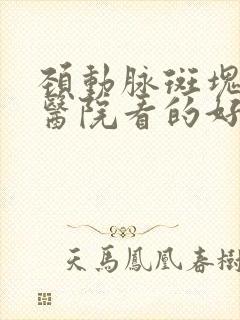 頚動脉斑塊
醫院看的好
天馬鳳凰春樹